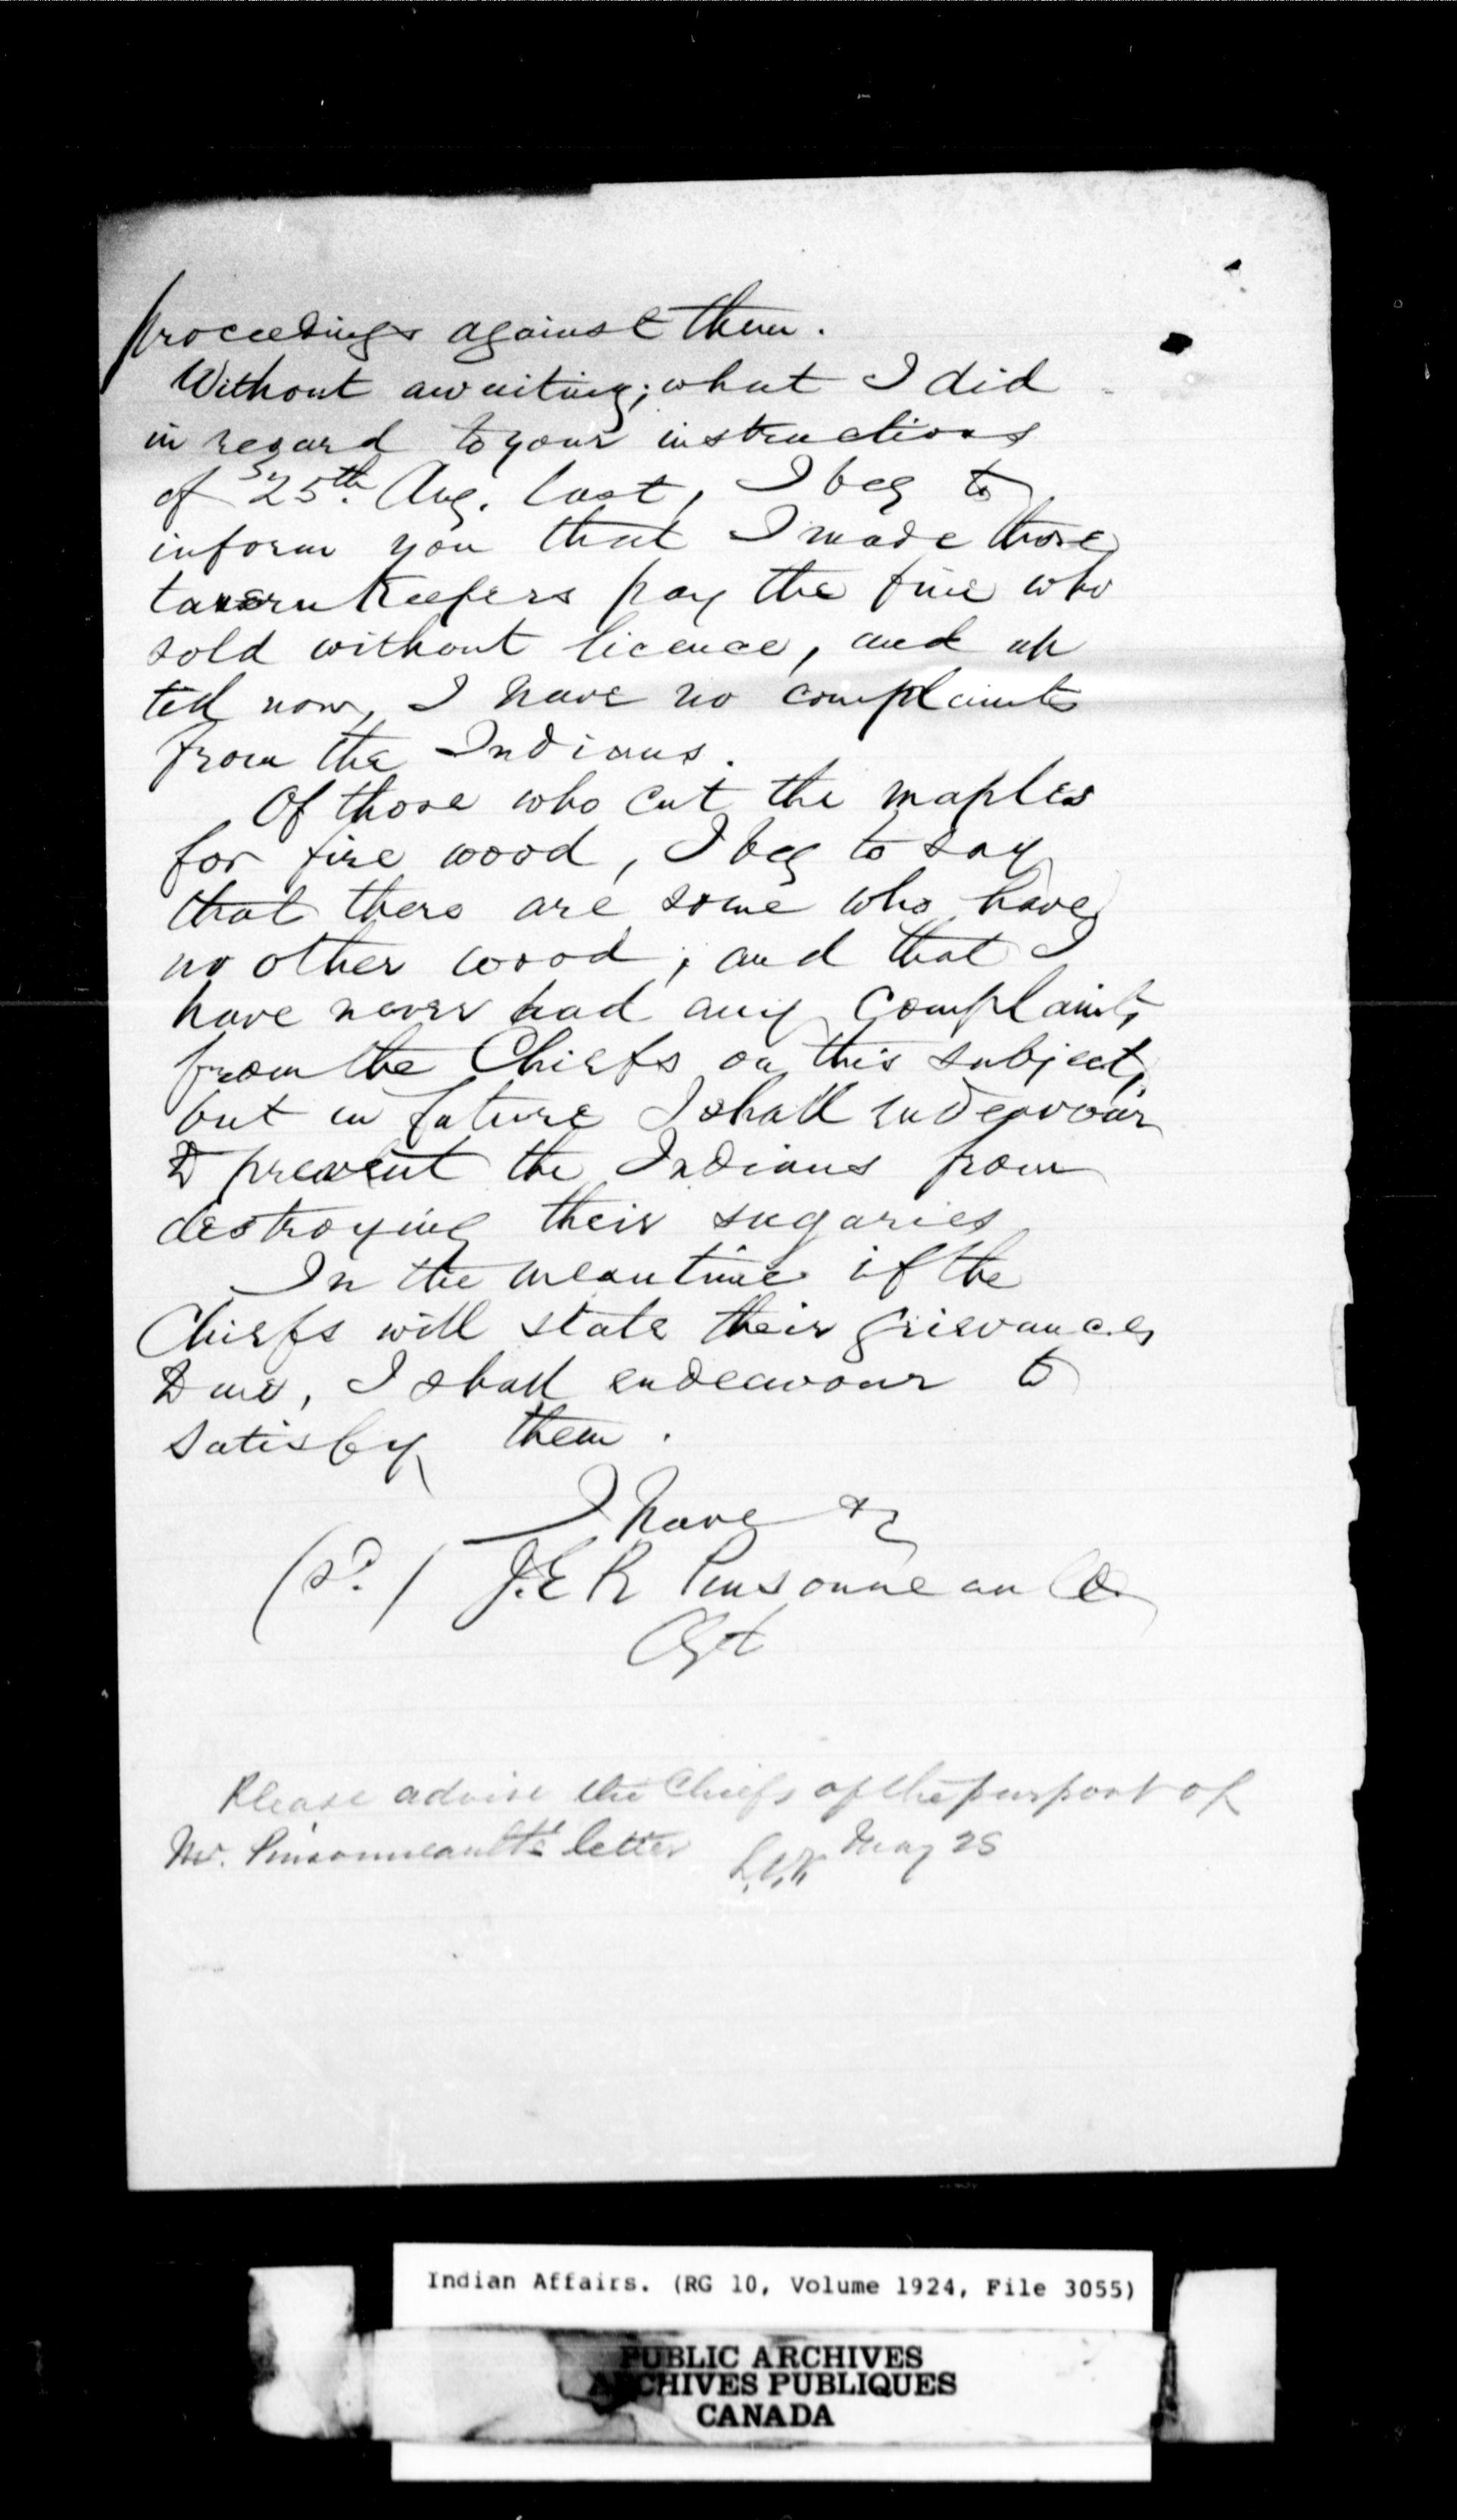 proceedings against them.
Without awaiting; what I did
in regard to your instructions
of 25th. Aug. last, I beg to
inform you that I made those
tavern Keepers pay the fine who
sold without licence, and up
till now, I have no complaints
from the Indians.
Of those who cut the maples
for fire wood, I beg to say
that there are some who have
no other wood; and that I
have never had any complaints
from the Chiefs on this subject,
but in future I shall endeavour
to prevent the Indians from
destroying their sugaries
In the meantime if the
Chiefs will state their grievances
to me, I shall endeavour to
satisfy them.
I have &c
(sd.) J.E R Pinsonneault
Agt
Please advise the Chiefs of the purport of
Mr. Pinsonneault's letter May 25
Indian Affairs. (RG 10, Volume 1924, File 3055)
PUBLIC ARCHIVES
ARCHIVES PUBLIQUES
CANADA